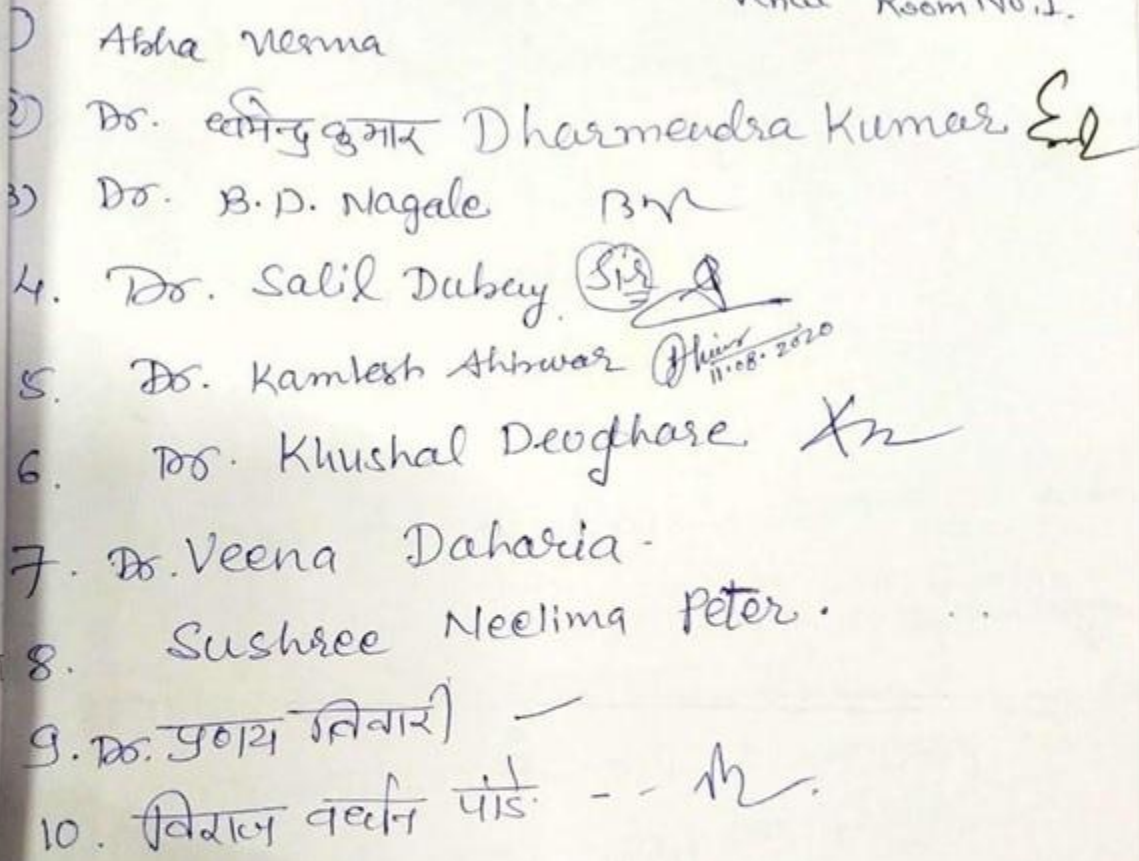 Room No. 1.
1) Abha Verma
2) Dr. धर्मेन्द्र कुमार Dharmendra Kumar
3) Dr. B.D. Nagale
4. Dr. Salil Dubay (Sir)
5. Dr. Kamlesh Ahirwar 11.08.2020
6. Dr. Khushal Deoghare
7. Dr. Veena Daharia -
8. Sushree Neelima Peter.
9. Dr. प्रणय तिवारी -
10. विराज वर्धन पांडे - -